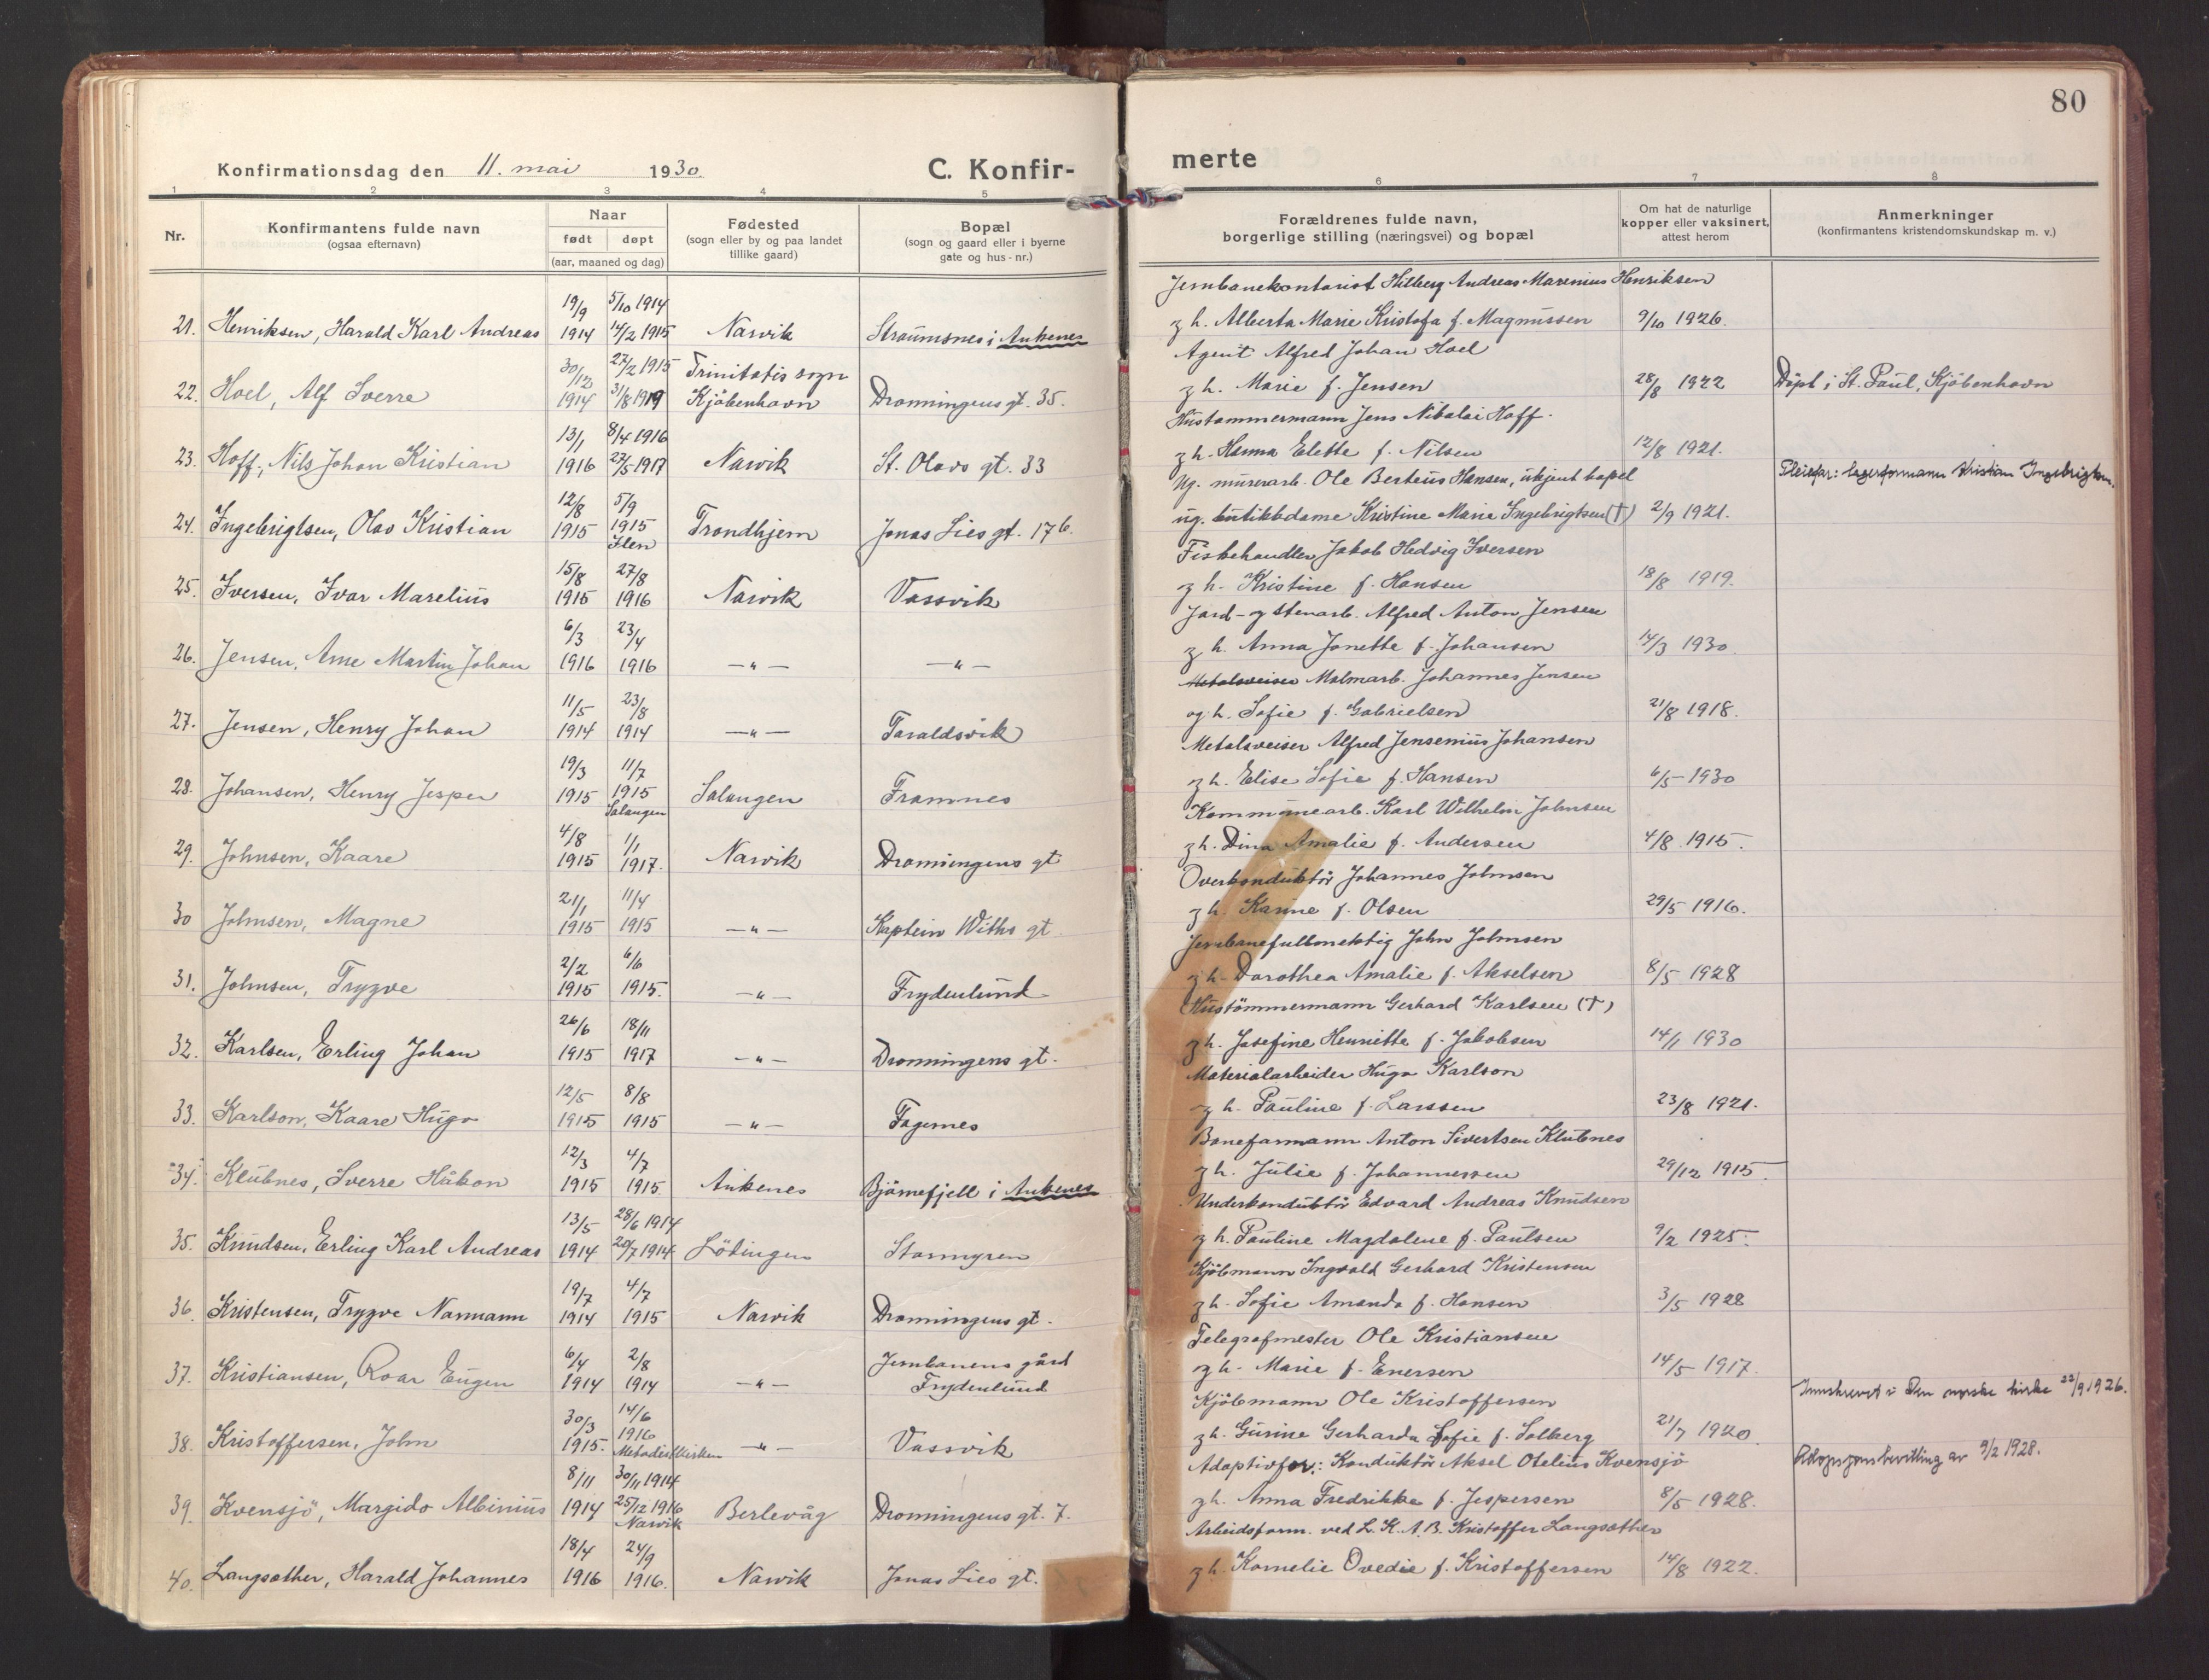 80
Konfirmationsdag den 11. mai 1930.
C. Konfir-
merte
1 2 3 4 5 6 7 8
Nr.
Konfirmantens fulde navn
(ogsaa efternavn)
Naar
født døpt
(aar, maaned og dag)
Fødested
(sogn eller by og paa landet
tillike gaard)
Bopæl
(sogn og gaard eller i byerne
gate og hus-nr.)
Forældrenes fulde navn,
borgerlige stilling (næringsvei) og bopæl
Om hat de naturlige
kopper eller vaksinert,
attest herom
Anmerkninger
(konfirmantens kristendomskundskap m. v.)
19/9 5/10 1914 Jernbanekontorist Hilberg Andreas Marenius Henriksen
21. Henriksen, Harald Karl Andreas 1914 14/2 1915 Narvik Straumsnes i Ankenes og h. Alberta Marie Kristofa f. Magnussen 9/10 1926.
30/12 27/2 1915 Trinitatis sogn Agent Alfred Johan Hoel
22. Hoel, Alf Sverre 1914 31/8 1919 Kjöbenhavn Dronningens gt. 35. og h. Marie f. Jensen 28/8 1922 Döpt i St. Paul, Kjöbenhavn
13/1 8/4 1916 Hustømmermann Jens Nikolai Hoff.
23. Hoff, Nils Johan Kristian 1916 27/5 1917 Narvik St. Olavs gt. 33 og h. Hanna Elette f. Nilsen 12/8 1921.
12/8 5/9 Ug. murerarb. Ole Berteus Hansen, ukjent bopel Pleiefar: lagerformann Kristian Ingebrigtsen.
24. Ingebrigtsen, Olav Kristian 1915 1915 Ilen Trondhjem Jonas Lies gt. 17b. ug. butikkdame Kristine Marie Ingebrigtsen (†) 2/9 1921.
15/8 27/8 Fiskehandler Jakob Hedvig Iversen
25. Iversen, Ivar Marelius 1915 1916 Narvik Vassvik og h. Kristine f. Hansen 18/8 1919.
6/3 23/4 Jord- og stenarb. Alfred Anton Jensen
26. Jensen, Arne Martin Johan 1916 1916 —„— —„— og h. Anna Jonette f. Johansen 14/3 1930.
11/5 23/8 Metalsveiser Malmarb. Johannes Jensen
27. Jensen, Henry Johan 1914 1914 —„— Taraldsvik og h. Sofie f. Gabrielsen 21/8 1918.
19/3 11/7 Metalsveiser Alfred Jensenius Johansen
28. Johansen, Henry Jesper 1915 1915 Salangen Salangen Framnes og h. Elise Sofie f. Hansen 6/5 1930
4/8 1/1 Kommunearb. Karl Wilhelm Johnsen
29. Johnsen, Kaare 1915 1917. Narvik Dronningens gt og h. Dina Amalie f. Andersen 4/8 1915.
21/1 11/4 Overkonduktör Johannes Johnsen
30 Johnsen, Magne 1915 1915 —„— Kaptein Withs gt. og h. Karine f. Olsen 29/5 1916.
2/2 6/6 Jernbanefullmektig John Johnsen
31. Johnsen, Trygve 1915 1915. —„— Frydenlund og h. Dorothea Amalie f. Akselsen 8/5 1928
26/6 18/11 Hustömmermann Gerhard Karlsen (†)
32. Karlsen, Erling Johan 1915 1917 —„— Dronningens gt. og h. Josefine Henriette f. Jakobsen 14/1 1930
12/5 8/8 Materialarbeider Hugo Karlson
33. Karlson, Kaare Hugo 1915 1915 —„— Fagernes og h. Pauline f. Larssen 23/8 1921.
12/3 4/7 Baneformann Anton Sivertsen Klubnes
34. Klubnes, Sverre Håkon 1915 1915. Ankenes Björnefjell i Ankenes og h. Julie f. Johannessen 29/12 1915.
13/5 28/6 1914 Underkonduktör Edvard Andreas Knudsen
35. Knudsen, Erling Karl Andreas 1914 20/7 1914 Lödingen Stormyren og h. Pauline Magdalene f. Paulsen 9/2 1925.
19/7 4/7 Kjöbmann Ingvald Gerhard Kristensen
36. Kristensen, Trygve Normann 1914 1915 Narvik Dronningens gt. og h. Sofie Amanda f. Hansen 3/5 1928
6/4 2/8 Jernbanens gård Telegrafmester Ole Kristiansen
37. Kristiansen, Roar Eugen 1914 1914 —„— Frydenlund og h. Marie f. Enersen 14/5 1917.
30/3 14/6 Kjöbmann Ole Kristoffersen Innskrevet i Den norske kirke 22/9 1926.
38. Kristoffersen, John 1915. 1916 Metodistkirken —„— Vassvik og h. Gurine Gerharda Sofie f. Solberg 21/7 1920.
8/11 30/11 1914 Adoptivfor.: Konduktör Aksel Otelius Kvensjö Adopsjonsbevilling av 9/2 1928.
39. Kvensjö, Margido Albinius 1914 25/12 1916 Narvik Berlevåg Dronningens gt. 7. og h. Anna Fredrikke f. Jespersen 8/5 1928.
18/4 24/9 Arbeidsform. ved L.K.A.B. Kristoffer Langsæther
40. Langsæther, Harald Johannes 1916 1916. Narvik Jonas Lies gt. og h. Kornelie Ovedie f. Kristoffersen 14/8 1922.